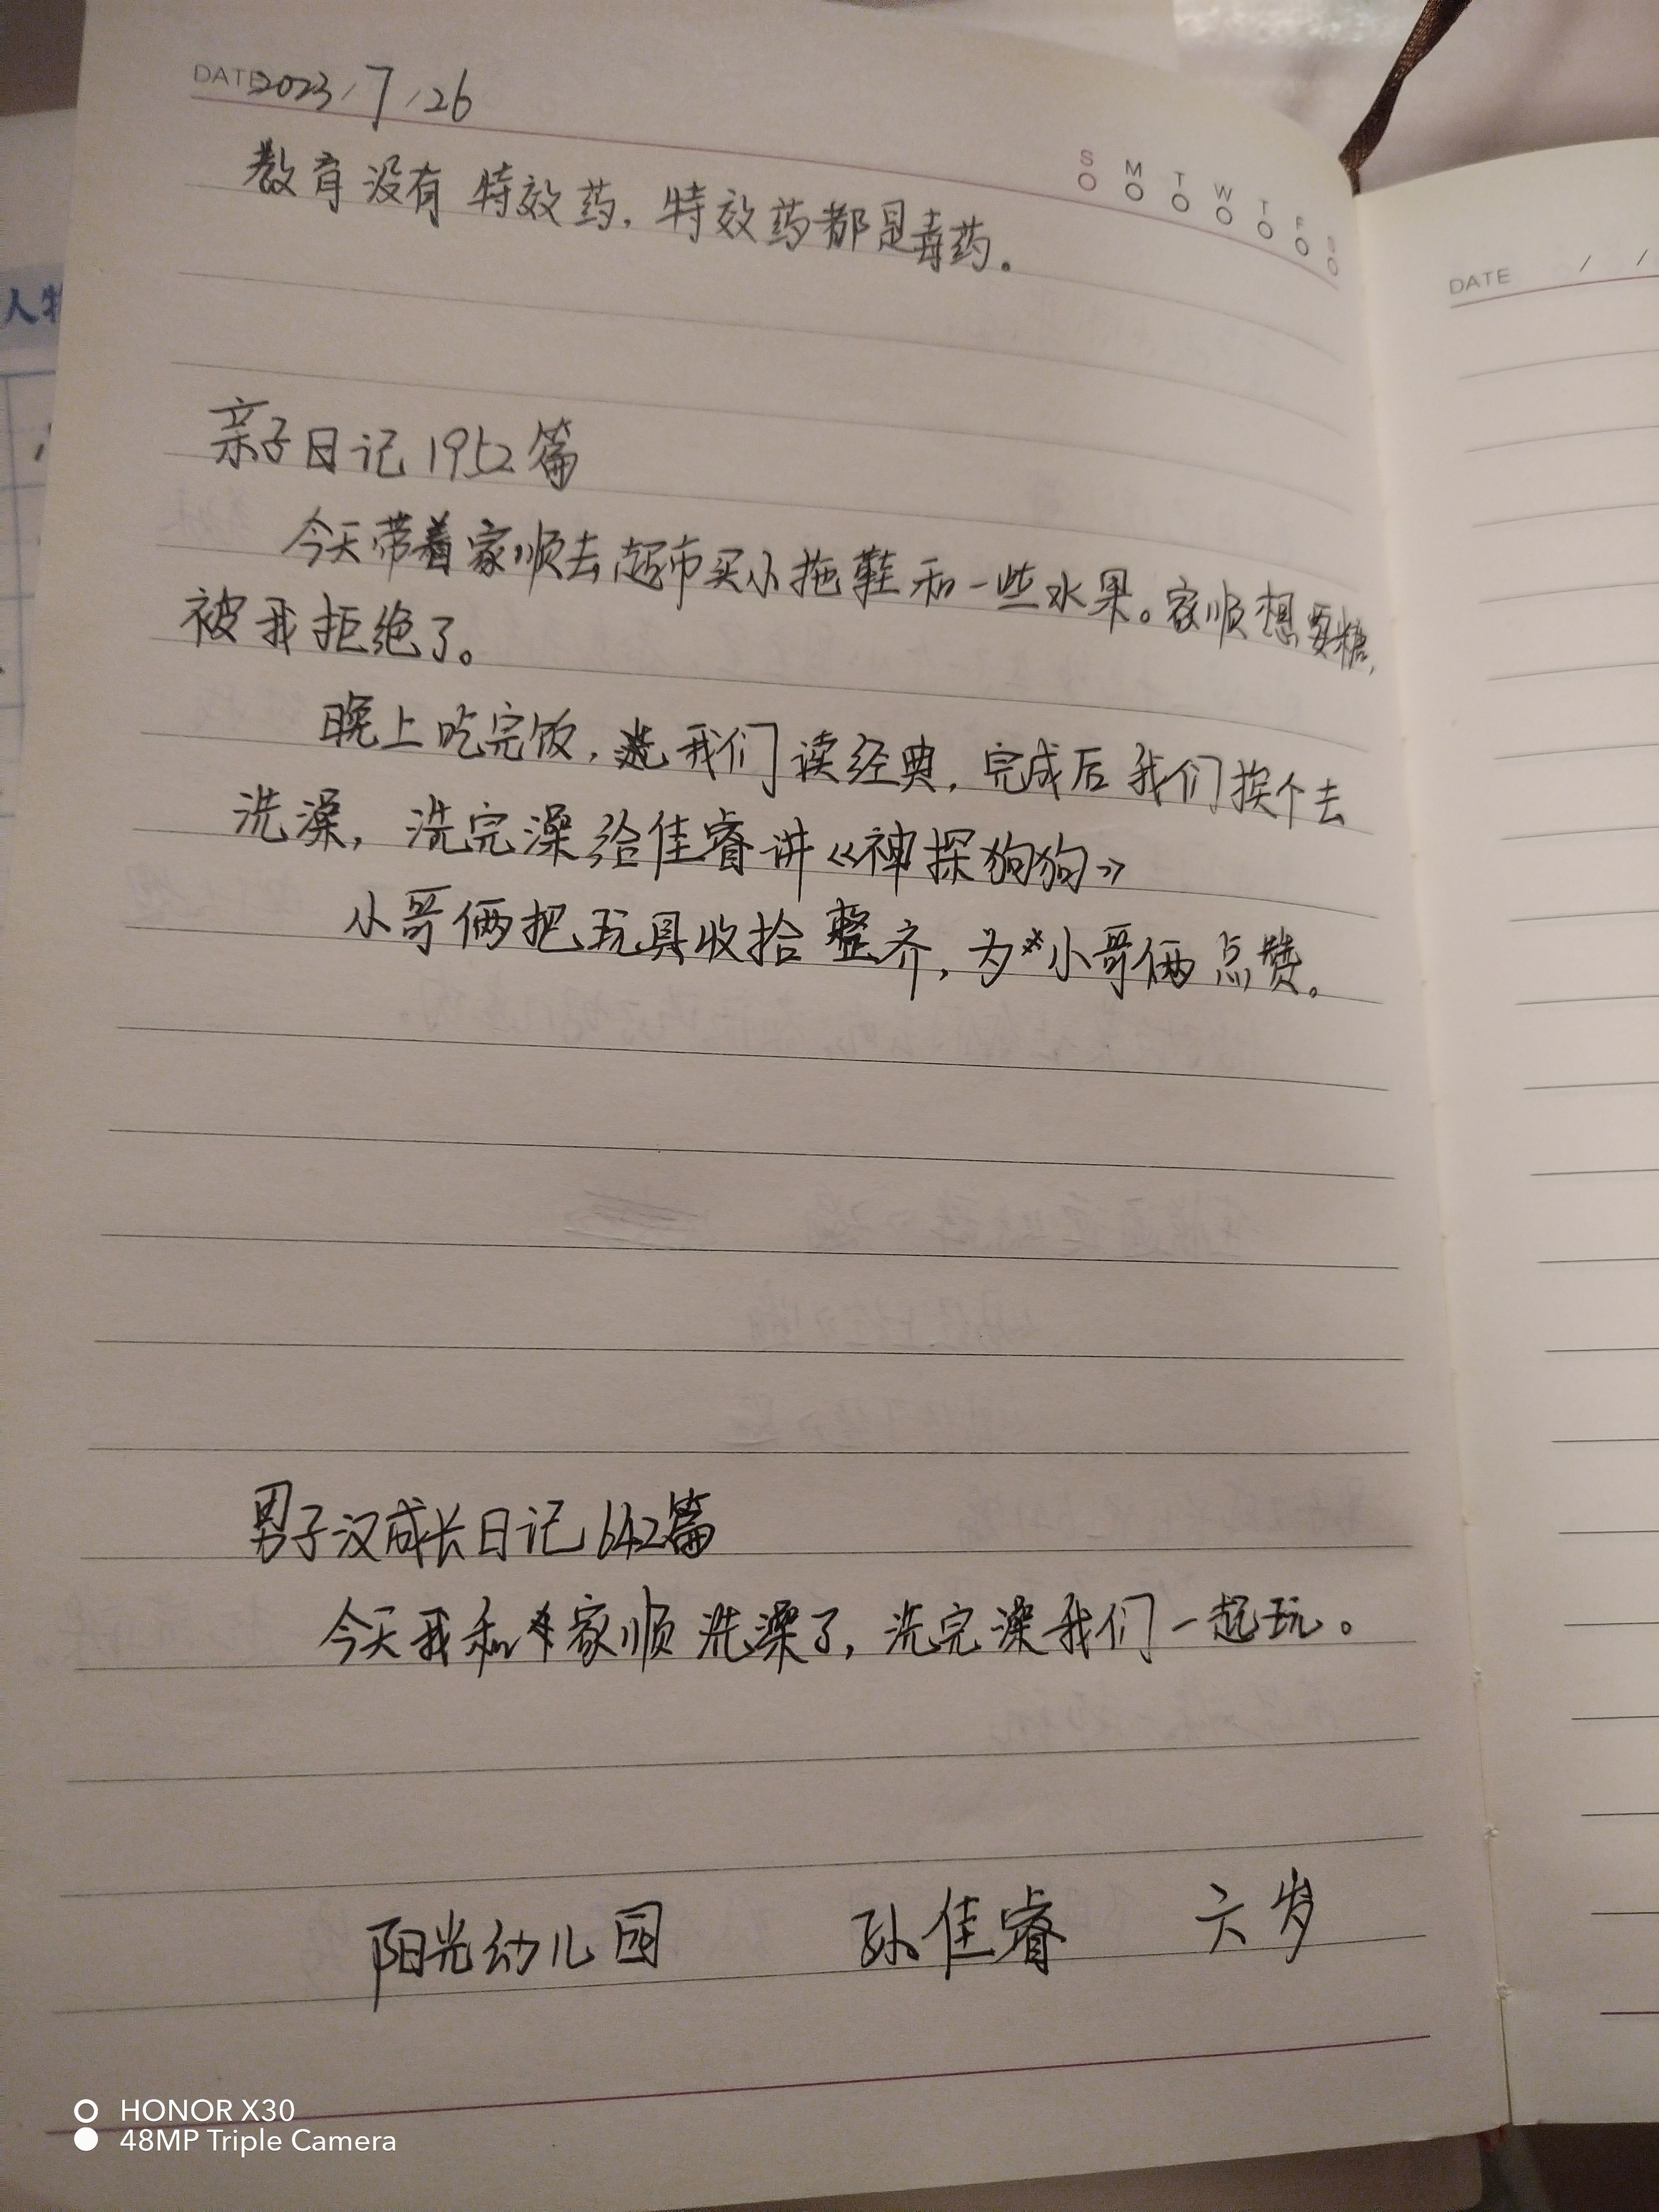 DATE 2023/7/26
S M T W T F S
教育没有特效药,特效药都是毒药。
亲子日记1952篇
今天带着家顺去超市买小拖鞋和一些水果。家顺想要糖,
被我拒绝了。
晚上吃完饭,我们读经典,完成后我们挨个去
洗澡,洗完澡给佳睿讲《神探狗狗》
小哥俩把玩具收拾整齐,为小哥俩点赞。
男子汉成长日记642篇
今天我和家顺洗澡了,洗完澡我们一起玩。
阳光幼儿园 孙佳睿 六岁
DATE / /
人物
HONOR X30
48MP Triple Camera